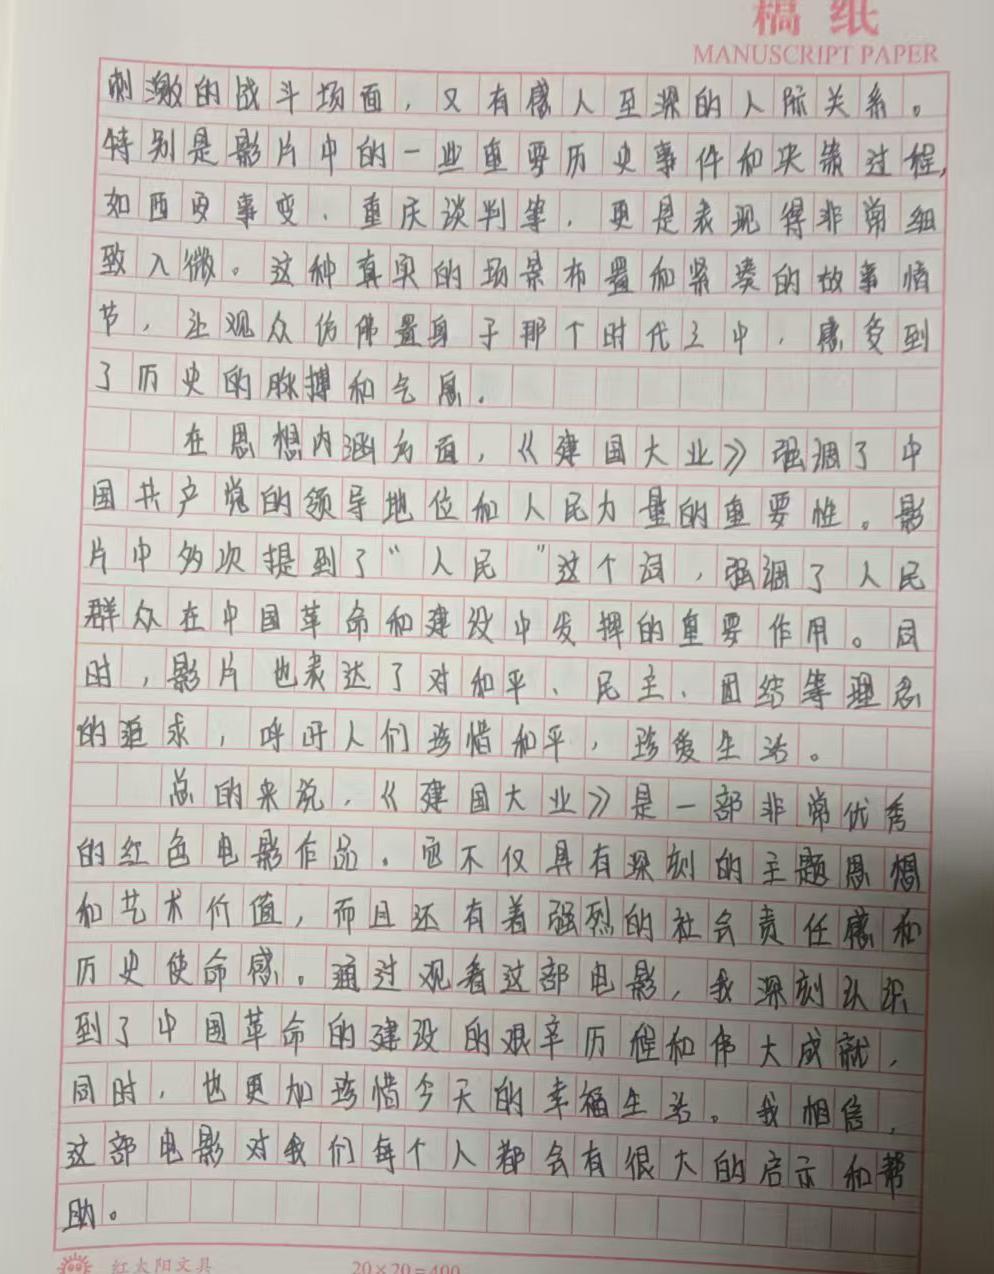 稿纸
MANUSCRIPT PAPER
刺激的战斗场面，又有感人至深的人际关系。
特别是影片中的一些重要历史事件和决策过程，
如西安事变、重庆谈判等，更是表现得非常细
致入微。这种真实的场景布置和紧凑的故事情
节，让观众仿佛置身于那个时代之中，感受到
了历史的脉搏和气息。
在思想内涵方面，《建国大业》强调了中
国共产党的领导地位和人民力量的重要性。影
片中多次提到了“人民”这个词，强调了人民
群众在中国革命和建设中发挥的重要作用。同
时，影片也表达了对和平、民主、团结等理念
的追求，呼吁人们珍惜和平，珍爱生活。
总的来说，《建国大业》是一部非常优秀
的红色电影作品。它不仅具有深刻的主题思想
和艺术价值，而且还有着强烈的社会责任感和
历史使命感。通过观看这部电影，我深刻认识
到了中国革命的建设的艰辛历程和伟大成就，
同时，也更加珍惜今天的幸福生活。我相信，
这部电影对我们每个人都会有很大的启示和帮
助。
红太阳文具
20×20=400